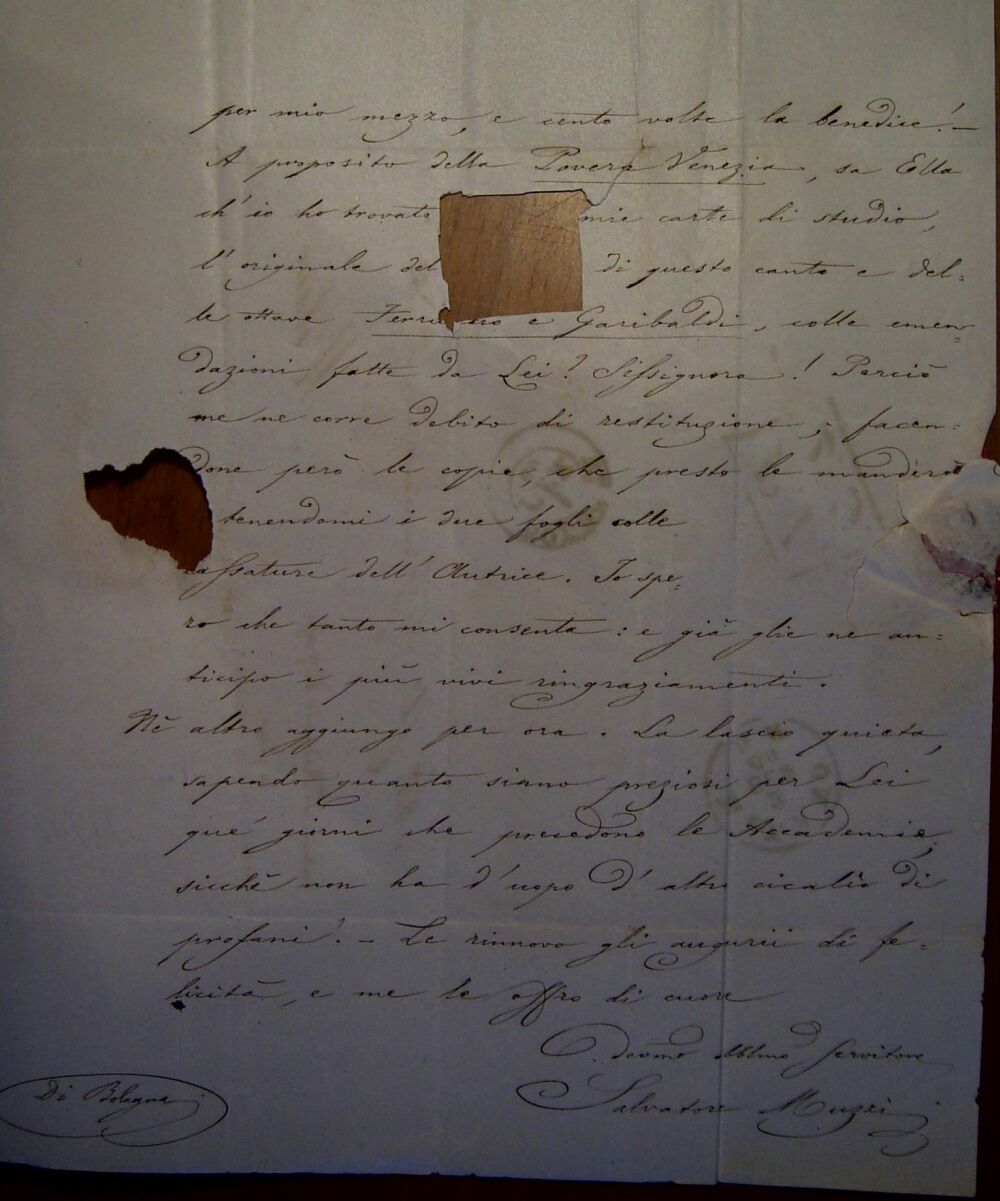 per mio mezzo, e cento volte la benedice! -
A proposito della Povera Venezia, sa Ella
ch'io ho trovato mie carte di studio,
l'originale del di questo canto e del=
le ottave Ferruccio e Garibaldi, colle emen=
dazioni fatte da Lei? Sissignora! Perciò
me ne corre debito di restituzione; facen=
done però le copie, che presto le manderò
tenendomi i due fogli colle
cassature dell'Autrice. Io spe=
ro che tanto mi consenta: e già glie ne an=
ticipo i più vivi ringraziamenti.
Nè altro aggiungo per ora. La lascio quieta,
sapendo quanto siano preziosi per Lei
que' giorni che precedono le Accademie,
sicchè non ha d'uopo d'altro cicalìo di
profani. - Le rinnovo gli augurii di fe=
licità, e me le offro di cuore
Devmo Obblmo Servitore
Salvatore Muzzi
Di Bologna